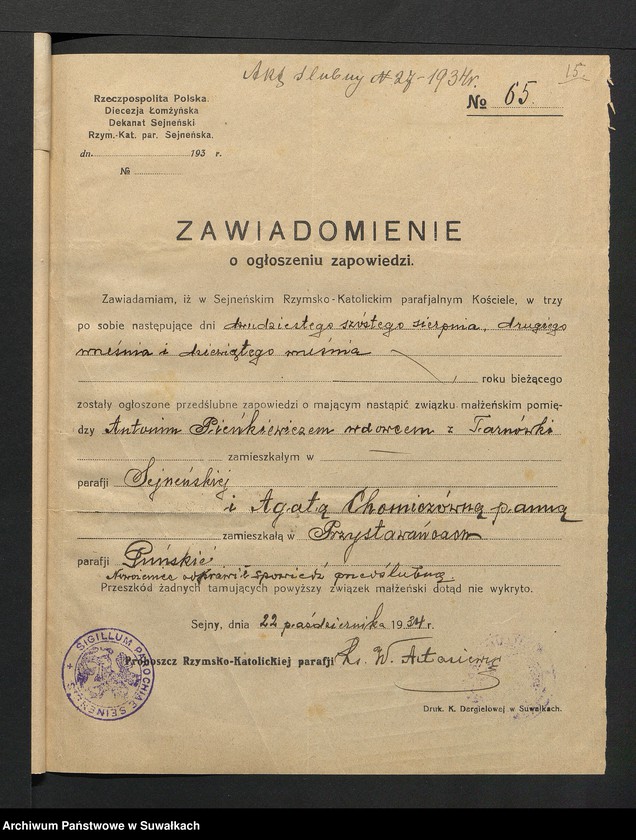 Akt ślubny № 27-1934r.
15.
№ 65.
Rzeczpospolita Polska.
Diecezja Łomżyńska
Dekanat Sejneński
Rzym.-Kat. par. Sejneńska.
dn. 193 r.
№
ZAWIADOMIENIE
o ogłoszeniu zapowiedzi.
Zawiadamiam, iż w Sejneńskim Rzymsko-Katolickim parafjalnym Kościele, w trzy
po sobie następujące dni dwudziestego szóstego sierpnia, drugiego
września i dziewiątego września
roku bieżącego
zostały ogłoszone przedślubne zapowiedzi o mającym nastąpić związku małżeńskim pomię-
dzy Antonim Pieńkiewiczem wdowcem z Tarnówki
zamieszkałym w
parafji Sejneńskiej
i Agatą Chomiczówną panną
zamieszkałą w Przystawańcach
parafji Puńskiej
Narzeczony odprawił spowiedź przedślubną.
Przeszkód żadnych tamujących powyższy związek małżeński dotąd nie wykryto.
Sejny, dnia 22 października 1934 r.
Proboszcz Rzymsko-Katolickiej parafji Ks. W. Astasiewicz
SIGILLUM PAROCHIAE SEINENSIS
Druk. K. Dergielowej w Suwałkach.
Archiwum Państwowe w Suwałkach